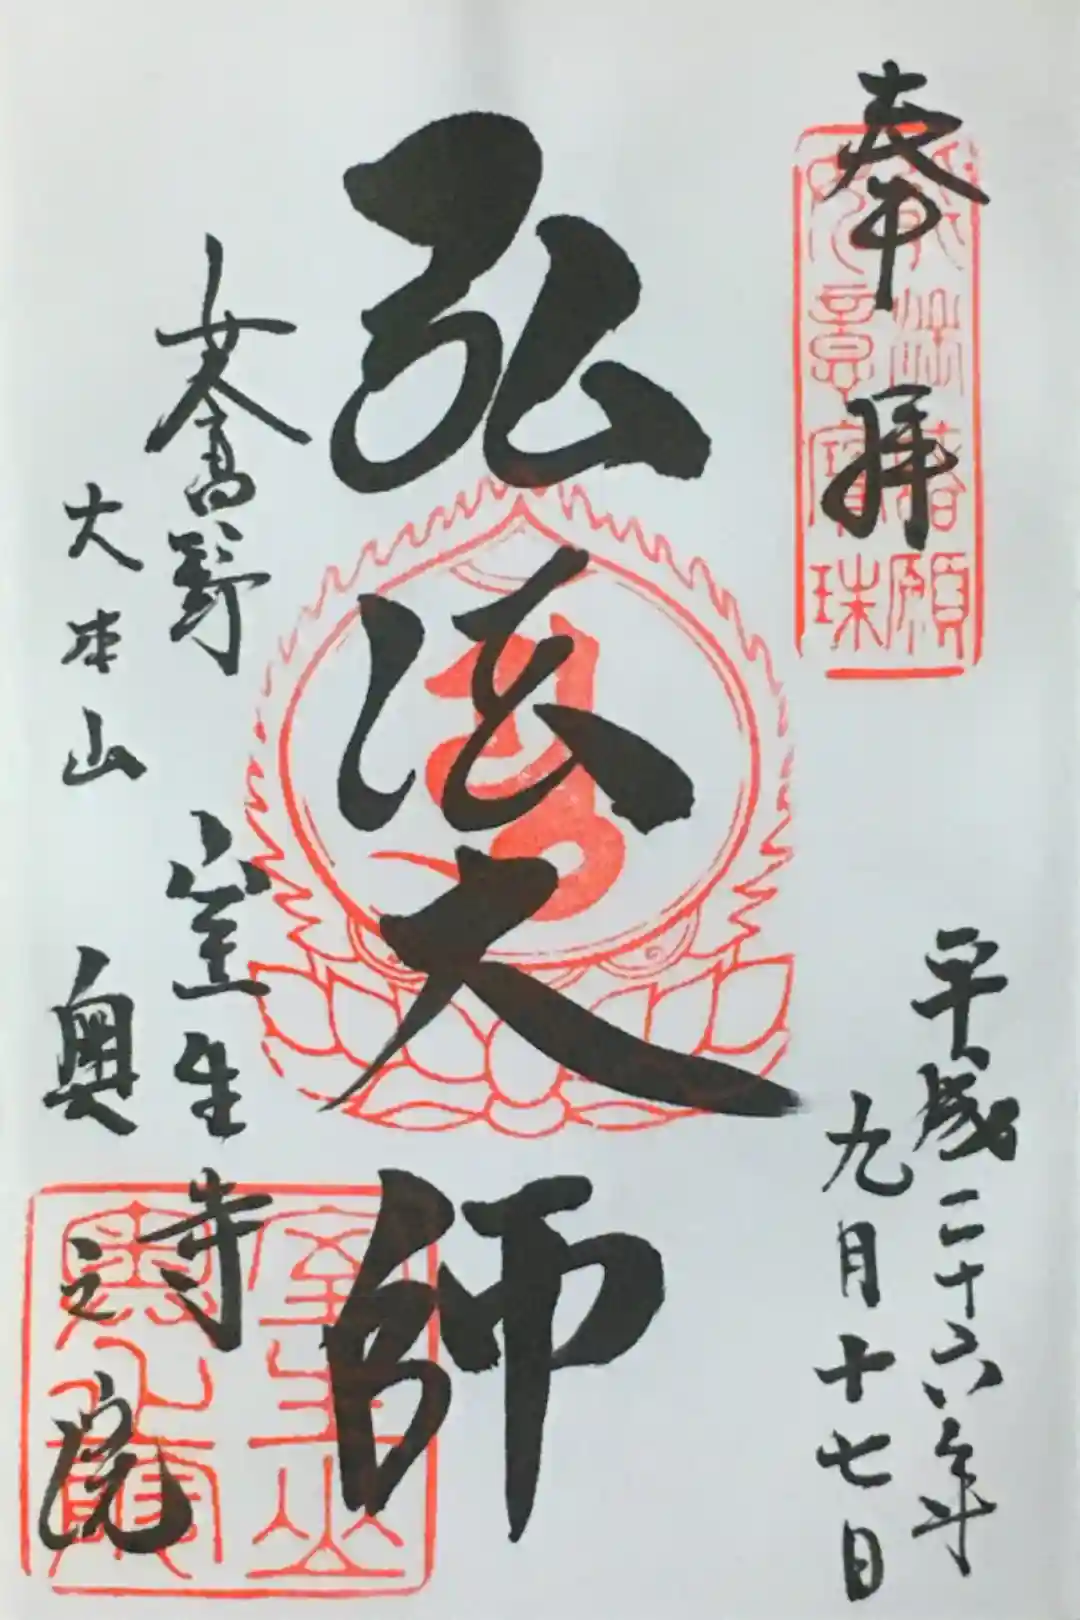 奉拝
平成二十六年
九月十七日
弘法大師
女人高野 室生寺
大本山 奥之院